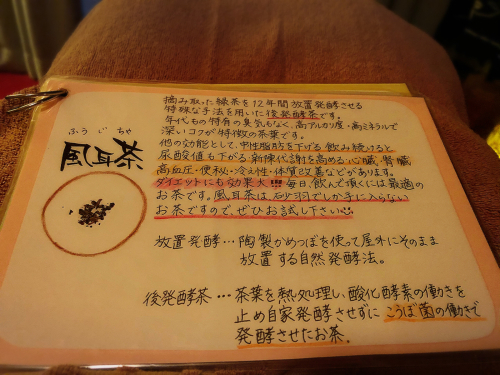 摘み取った緑茶を12年間放置発酵させる
特殊な手法を用いた後発酵茶です。
年代もの特有の臭気もなく、高アルカリ度・高ミネラルで
深いコクが特徴の茶葉です。
他の効能として、中性脂肪を下げる 飲み続けると
尿酸値も下がる・新陳代謝を高める・心臓・腎臓
高血圧・便秘・冷え性・体質改善などがあります。
ダイエットにも効果大!!!! 毎日、飲んで頂くには最適の
お茶です。風耳茶は、砂羽でしか手に入らない
お茶ですので、ぜひお試し下さい
ふうじちゃ
風耳茶
放置発酵…陶製かめつぼを使って屋外にそのまま
放置する自然発酵法。
後発酵茶…茶葉を熱処理し、酸化酵素の働きを
止め自家発酵させずに こうぼ菌の働きで
発酵させたお茶。